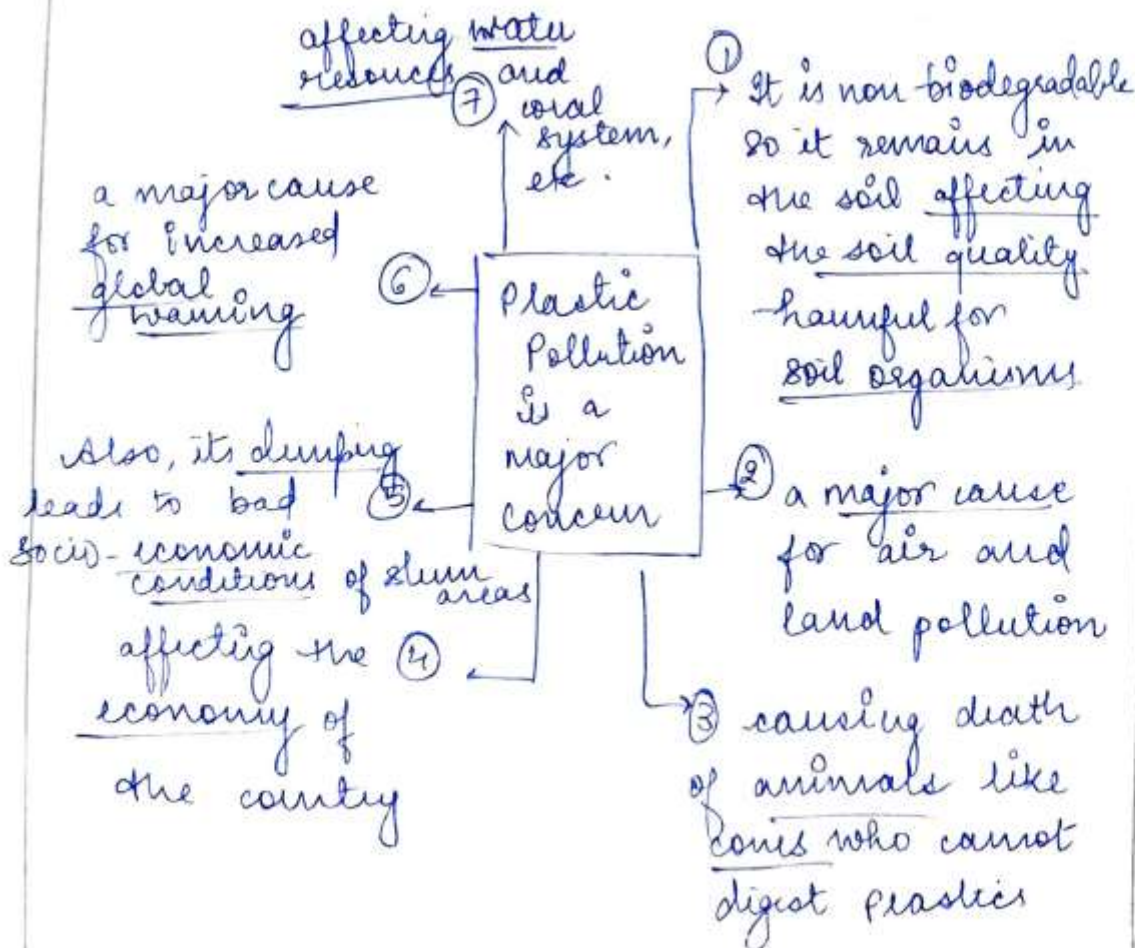 Plastic
Pollution
is a
major
concern
① It is non-biodegradable
so it remains in
the soil affecting
the soil quality
harmful for
soil organisms
② a major cause
for air and
land pollution
③ causing death
of animals like
cows who cannot
digest plastics
④ affecting the
economy of
the country
⑤ Also, its dumping
leads to bad
socio-economic
conditions of slum
areas
⑥ a major cause
for increased
global
warming
⑦ affecting water
resouces and
coral
system,
etc.